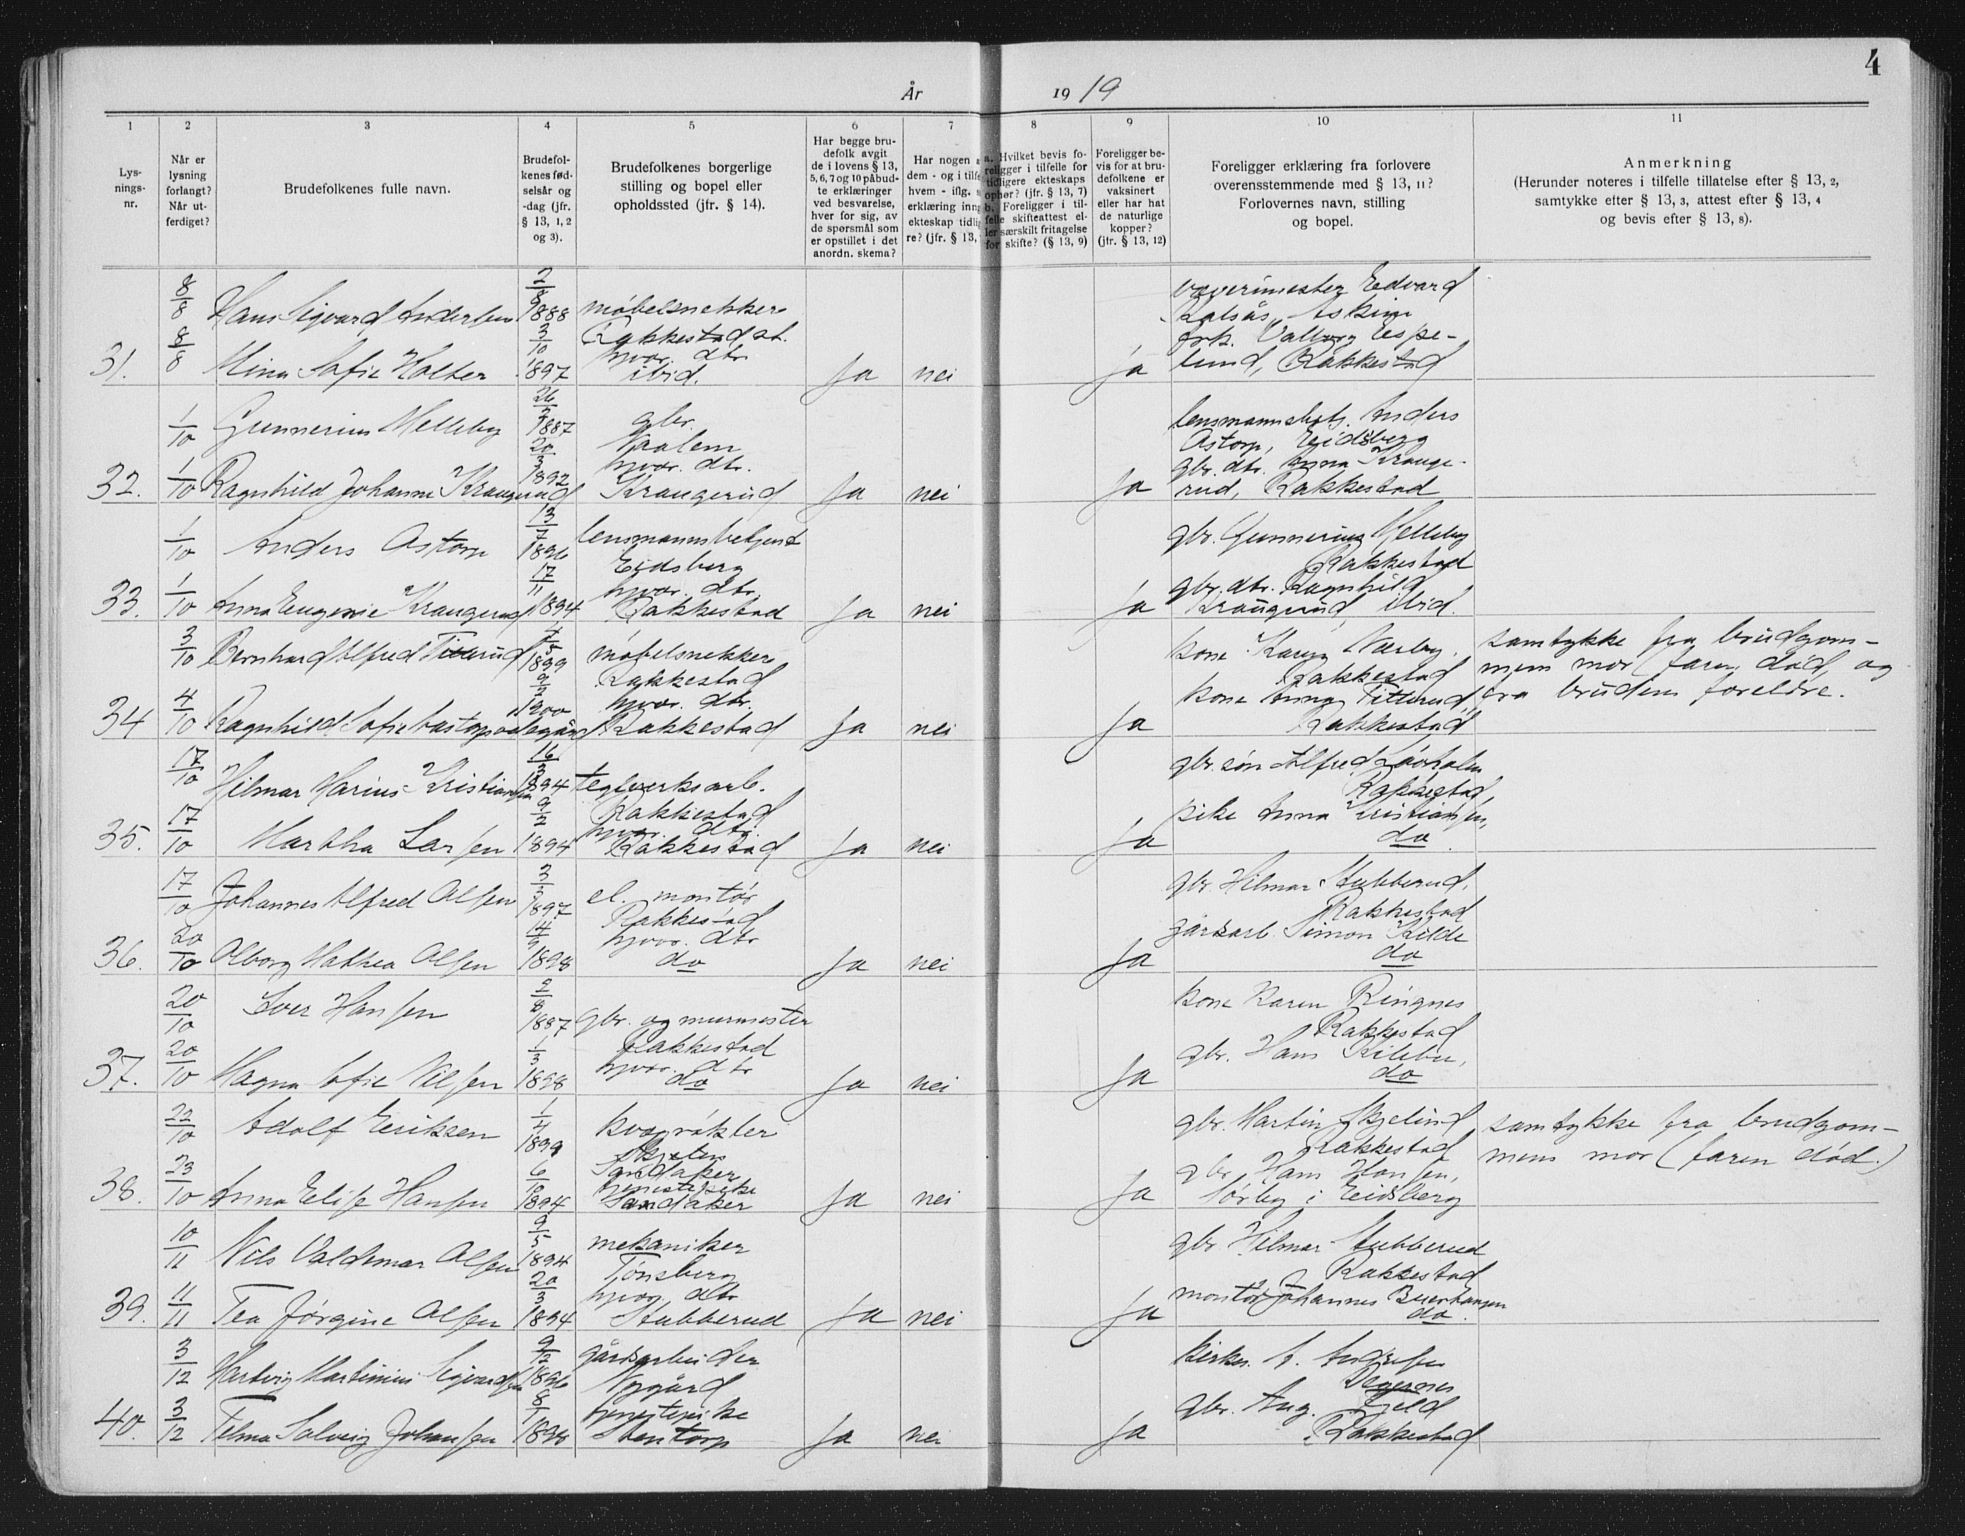 4
År 1919
1 2 3 4 5 6 7 8 9 10 11
Lys-
nings-
nr.
Når er
lysning
forlangt?
Når ut-
ferdiget?
Brudefolkenes fulle navn.
Brudefol-
kenes fød-
selsår og
-dag (jfr.
§ 13, 1, 2
og 3).
Brudefolkenes borgerlige
stilling og bopel eller
opholdssted (jfr. § 14).
Har begge bru-
defolk avgit
de i lovens § 13,
5, 6, 7 og 10 påbud-
te erklæringer
ved besvarelse,
hver for sig, av
de spørsmål som
er opstillet i det
anordn. skema?
Har nogen a
dem - og i tilfe
hvem - iflg.
erklæring inng
ekteskap tidli
re? (jfr. § 13,
a. Hvilket bevis fo-
religger i tilfelle for
tidligere ekteskaps
ophør? (jfr. § 13, 7)
b. Foreligger i til-
felle skifteattest el-
ler særskilt fritagelse
for skifte? (§ 13, 9)
Foreligger be-
vis for at bru-
defolkene er
vaksinert
eller har hat
de naturlige
kopper?
(jfr. § 13, 12)
Foreligger erklæring fra forlovere
overensstemmende med § 13, 11?
Forlovernes navn, stilling
og bopel.
Anmerkning
(Herunder noteres i tilfelle tillatelse efter § 13, 2,
samtykke efter § 13, 3, attest efter § 13, 4
og bevis efter § 13, 8).
8/8 Hans Sigvard Andersen 2/8 1888 møbelsnekker
Rakkestad st.
31. 8/8 Mina Sofie Holter 3/10 1897 hjvær. dtr.
ibid. Ja nei Ja
Edvard
Kalsås, Askim
frk. Valborg Espe-
lund, Rakkestad
1/10 Gunnerius Melleby 26/3 1887 gbr.
32. 1/10 Ragnhild Johanne Kraugerud 20/3 1892 hjvær. dtr.
Kraugerud Ja nei Ja
lensmannsbetj. Anders
Astorp, Eidsberg
gbr. dtr. Anna Krauge-
rud, Rakkestad
1/10 Anders Astorp 13/7 1896 lensmannsbetjent
Eidsberg
33. 1/10 Anna Eugenie Kraugerud 17/11 1894 hjvær. dtr.
Rakkestad Ja nei Ja
gbr. Gunnerius Melleby
Rakkestad
gbr. dtr. Ragnhild
Kraugerud, ibid.
3/10 Bernhard Alfred Titterud 1899 møbelsnekker
Rakkestad
34 4/10 Ragnhild Sofie 9/2 1900 hjvær. dtr.
Rakkestad Ja nei Ja
kone Karen Nærby.
Rakkestad
kone Anna Titterud,
Rakkestad
samtykke fra brudgom-
mens mor (faren død, og
fra brudens foreldre.
17/10 Hilmar Marius Kristiansen 16/3 1894 teglverksarb.
Rakkestad
35. 17/10 Martha Larsen 9/2 1894 hjvær. dtr.
Rakkestad Ja nei Ja
gbr. søn Alfred Løvholm
Rakkestad,
pike Anna Kristiansen,
do
17/10 Johannes Alfred Olsen 3/3 1897 el. montør
Rakkestad
36. 20/10 Olborg Mathea Olsen 14/9 1898 hjvær. dtr
do Ja nei Ja
gbr. Hilmar Stubberud,
Rakkestad
gårdsarb. Simon Kilde
do
20/10 Iver Hansen 2/8 1887 gbr. og murmester
Rakkestad
37. 20/10 Magna Sofie Nilsen 1/3 1898 hjvær. dtr
do Ja nei Ja
kone Karen Ringnes
Rakkestad
gbr. Hans Kilebu,
do
22/10 Adolf Eriksen 1/4 1899 kvægrøkter
Sandaker
38. 23/10 Anna Elise Hansen 6/10 1894 tjenestepike
Sandaker Ja nei Ja
gbr. Martin Skjelin
Rakkestad
gbr. Hans Hansen,
Sørby i Eidsberg
samtykke fra brudgom-
mens mor (faren død.)
10/11 Nils Valdemar Olsen 9/5 1894 mekaniker
Tønsberg
39. 11/11 Tea Jørgine Olsen 20/3 1894 hjvær. dtr
Stubberud Ja nei Ja
gbr Hilmar Stubberud
Rakkestad
montør Johannes
do.
3/12 Hartvig Martinius Sigvardsen 9/12 1896 gårdsarbeider
Nygård
40. 3/12 Telma Solveig Johansen 8/1 1898 tjenestepike
Stentorp Ja nei Ja
kirkes. A. Andresen
Degernes
gbr. Aug. Fjeld
Rakkestad